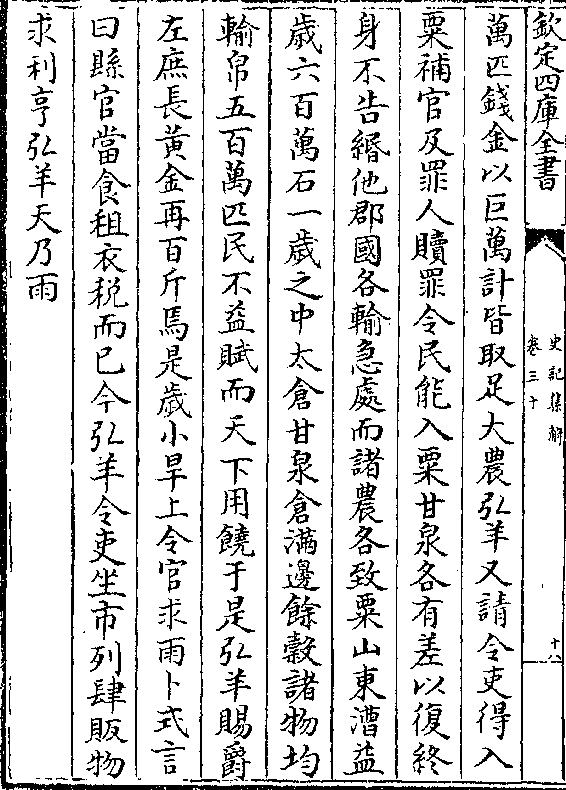 欽定四庫全書
史記集解
卷三十
十八
萬匹錢金以巨萬計皆取足大農弘羊又請令吏得入
粟補官及罪人贖罪令民能入粟甘泉各有差以復終
身不告緡他郡國各輸急處而諸農各致粟山東漕益
歲六百萬石一歲之中太倉甘泉倉滿邊餘穀諸物均
輸帛五百萬匹民不益賦而天下用饒于是弘羊賜爵
左庶長黃金再百斤焉是歲小旱上令官求雨卜式言
曰縣官當食租衣稅而已今弘羊令吏坐市列肆販物
求利亨弘羊天乃雨